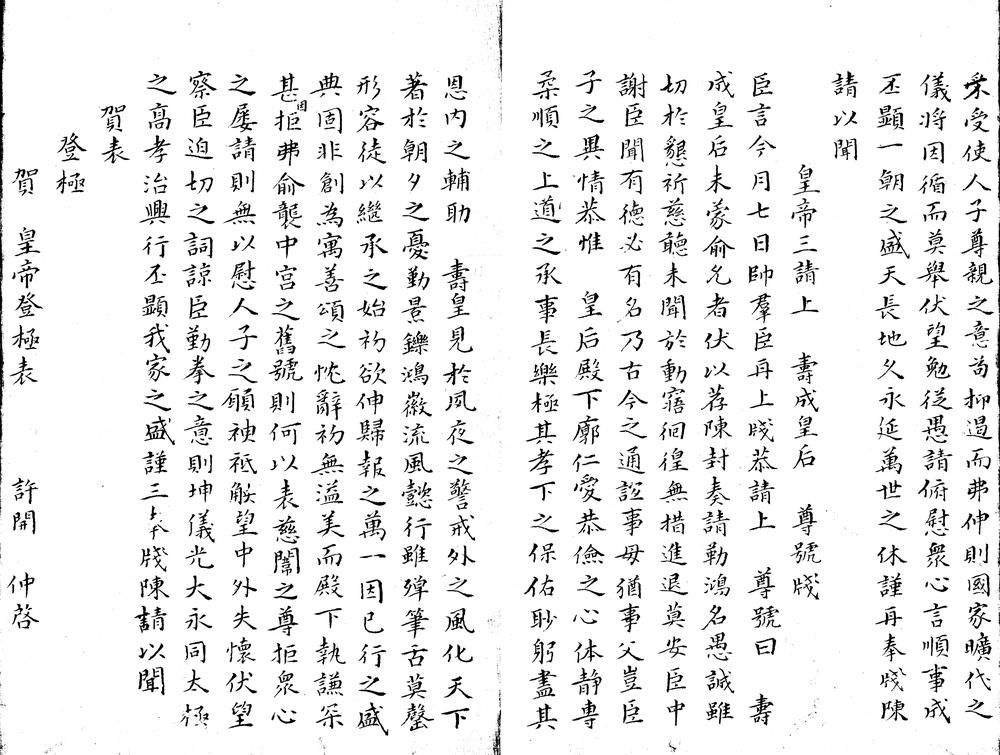 采受使人子尊親之意苟抑遏而弗伸則國家曠代之
儀將因循而莫舉伏望勉從愚請俯慰衆心言順事成
丕顯一朝之盛天長地久永延萬世之休謹再奉牋陳
請以聞
皇帝三請上 壽成皇后 尊號牋
臣言今月七日帥羣臣再上牋恭請上 尊號曰 壽
成皇后未蒙俞允者伏以荐陳封奏請勒鴻名愚誠雖
切於懇祈慈聽未聞於動寤徊徨無措進退莫安臣中
謝臣聞有德必有名乃古今之通誼事母猶事父豈臣
子之異情恭惟 皇后殿下廓仁愛恭儉之心体靜專
柔順之上道之承事長樂極其孝下之保佑眇躬盡其
恩內之輔助 壽皇見於夙夜之警戒外之風化天下
著於朝夕之憂勤景鑠鴻徽流風懿行雖殫筆舌莫罄
形容徒以繼承之始礽欲伸歸報之萬一因已行之盛
典固非創為寓善頌之忱辭礽無溢美而殿下執謙柔
甚固拒弗俞襲中宮之舊號則何以表慈闈之尊拒衆心
之屢請則無以慰人子之願神祇觖望中外失懷伏望
察臣迫切之詞諒臣勤拳之意則坤儀光大永同太極
之高孝治興行丕顯我家之盛謹三奉牋陳請以聞
賀表
登極
賀 皇帝登極表 許開 仲啓